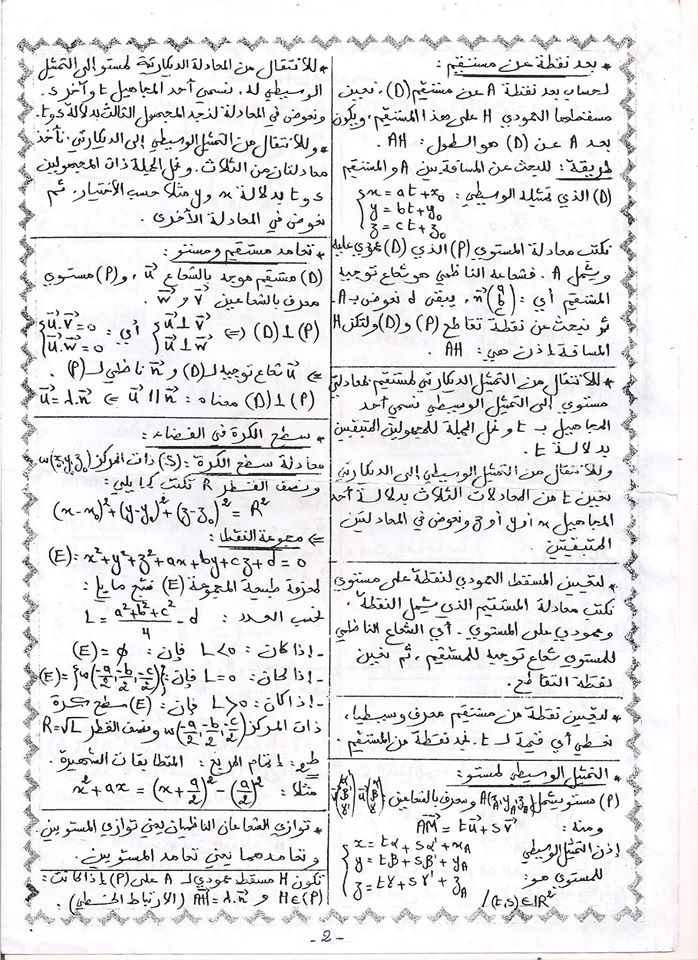 * بعد نقطة عن مستقيم :
لحساب بعد نقطة A عن مستقيم (D)، نعين
مسقطها العمودي H على هذا المستقيم، ويكون
بعد A عن (D) هو الطول: AH.
طريقة: للبحث عن المسافة بين A والمستقيم
(D) الذي تمثيله الوسيطي: x = at + x₀
y = bt + y₀
z = ct + z₀
نكتب معادلة المستوي (P) الذي (D) عمودي عليه
ويشمل A. فشعاعه الناظمي هو شعاع توجيه
المستقيم أي: n⃗(a b c)، يبقى d نعوض بـ A.
ثم نبحث عن نقطة تقاطع (P) و (D) ولتكن H
المسافة إذن هي: AH.
* للانتقال من التمثيل الديكارتي لمستقيم لمعادلتي
مستوي إلى التمثيل الوسيطي نسمي أحد
المجاهيل بـ t ونحل الجملة للمجهولين المتبقيين
بدلالة t.
وللانتقال من التمثيل الوسيطي إلى الديكارتي
نعين t من المعادلات الثلاث بدلالة أحد
المجاهيل x أو y أو z ونعوض في المعادلتين
المتبقيتين.
* لتعيين المسقط العمودي لنقطة على مستوي
نكتب معادلة المستقيم الذي يشمل النقطة،
وعمودي على المستوي. أي الشعاع الناظمي
للمستوي شعاع توجيه للمستقيم، ثم نعين
نقطة التقاطع.
* لتعيين نقطة من مستقيم معرف وسيطيا،
نعطي أي قيمة لـ t. نجد نقطة من المستقيم.
* التمثيل الوسيطي لمستو:
(P) مستو يشمل A(x_A, y_A, z_A) ومعرف بالشعاعين: u⃗(α β γ) v⃗(α' β' γ')
ومنه: AM⃗ = tu⃗ + sv⃗
إذن التمثيل الوسيطي x = tα + sα' + x_A
للمستوي هو: y = tβ + sβ' + y_A
z = tγ + sγ' + z_A / (t,s) ∈ ℝ²
* للانتقال من المعادلة الديكارتية لمستو إلى التمثيل
الوسيطي له، نسمي أحد المجاهيل t وآخر s.
ونعوض في المعادلة لنجد المجهول الثالث بدلالة t و s.
* وللانتقال من التمثيل الوسيطي إلى الديكارتي، نأخذ
معادلتان من الثلاث. ونحل الجملة ذات المجهولين
t و s بدلالة x و y مثلا حسب الاختيار، ثم
نعوض في المعادلة الأخرى.
* تعامد مستقيم ومستو:
(D) مستقيم موجه بالشعاع u⃗، و (P) مستوي
معرف بالشعاعين v⃗ و w⃗.
(D) ⊥ (P) ⇔ u⃗ ⊥ v⃗ أي: u⃗.v⃗ = 0
u⃗ ⊥ w⃗ u⃗.w⃗ = 0
⇒ u⃗ شعاع توجيه لـ (D) و n⃗ ناظمي لـ (P).
(D) ⊥ (P) معناه: u⃗ // n⃗ ⇔ u⃗ = λ.n⃗
* سطح الكرة في الفضاء:
معادلة سطح الكرة: (S) ذات المركز w(x₀, y₀, z₀)
ونصف القطر R تكتب كما يلي:
(x-x₀)² + (y-y₀)² + (z-z₀)² = R²
⇒ مجموعة النقط:
(E) = x² + y² + z² + ax + by + cz + d = 0
لمعرفة طبيعة المجموعة (E) نتبع ما يلي:
نحسب العدد: L = (a² + b² + c²)/4 - d
- إذا كان: L < 0 فإن: (E) = ϕ
- إذا كان: L = 0 فإن: (E) = {w(-a/2, -b/2, -c/2)}
- إذا كان: L > 0 فإن: (E) سطح كرة
ذات المركز w(-a/2, -b/2, -c/2) ونصف القطر R = √L
إتمام المربع: المتطابقات الشهيرة.
مثلا: x² + ax = (x + a/2)² - (a/2)²
* توازي الشعاعان الناظميان يعني توازي المستويين.
وتعامدهما يعني تعامد المستويين.
تكون H مسقط عمودي لـ A على (P) إذا كانت:
H ∈ (P) و AH⃗ = λ.n⃗ (الارتباط الخطي).
- 2 -